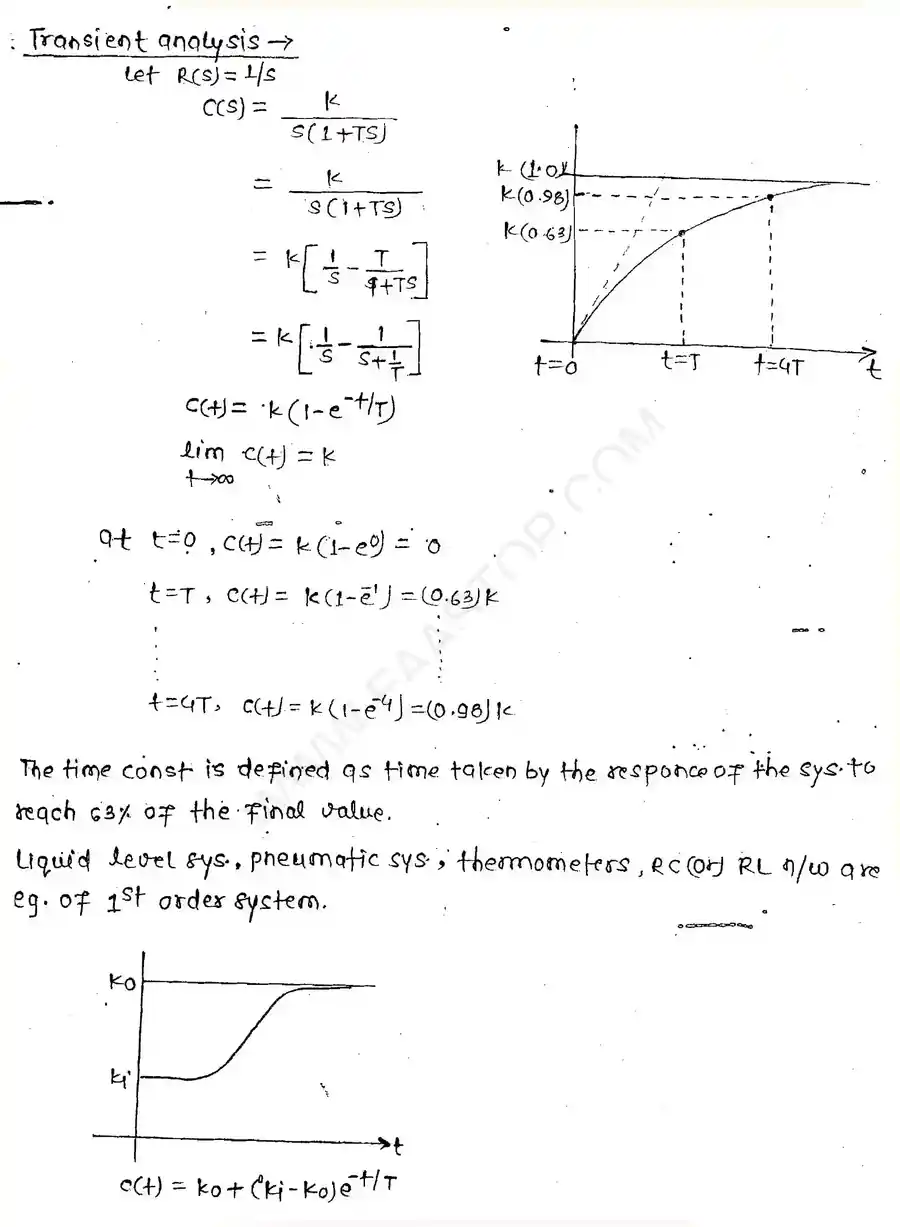 : Transient analysis →
Let R(S) = 1/S
C(S) = K / S(1+TS)
= K / S(1+TS)
= K [ 1/S - T/1+TS ]
= K [ 1/S - 1/S+1/T ]
C(t) = K(1-e^-t/T)
lim C(t) = K
t→∞
K (1.0)
K(0.98)
K(0.63)
t=0 t=T t=4T t
at t=0, C(t) = K(1-e^0) = 0
t=T, C(t) = K(1-e^-1) = (0.63)K
t=4T, C(t) = K(1-e^-4) = (0.98)K
WWW.FAADTOP.COM
The time const is defined as time taken by the responce of the sys. to
reach 63% of the final value.
Liquid level sys., pneumatic sys., thermometers, RC (or) RL n/w are
eg. of 1st order system.
Ko
Ki
t
C(t) = Ko + (Ki - Ko)e^-t/T